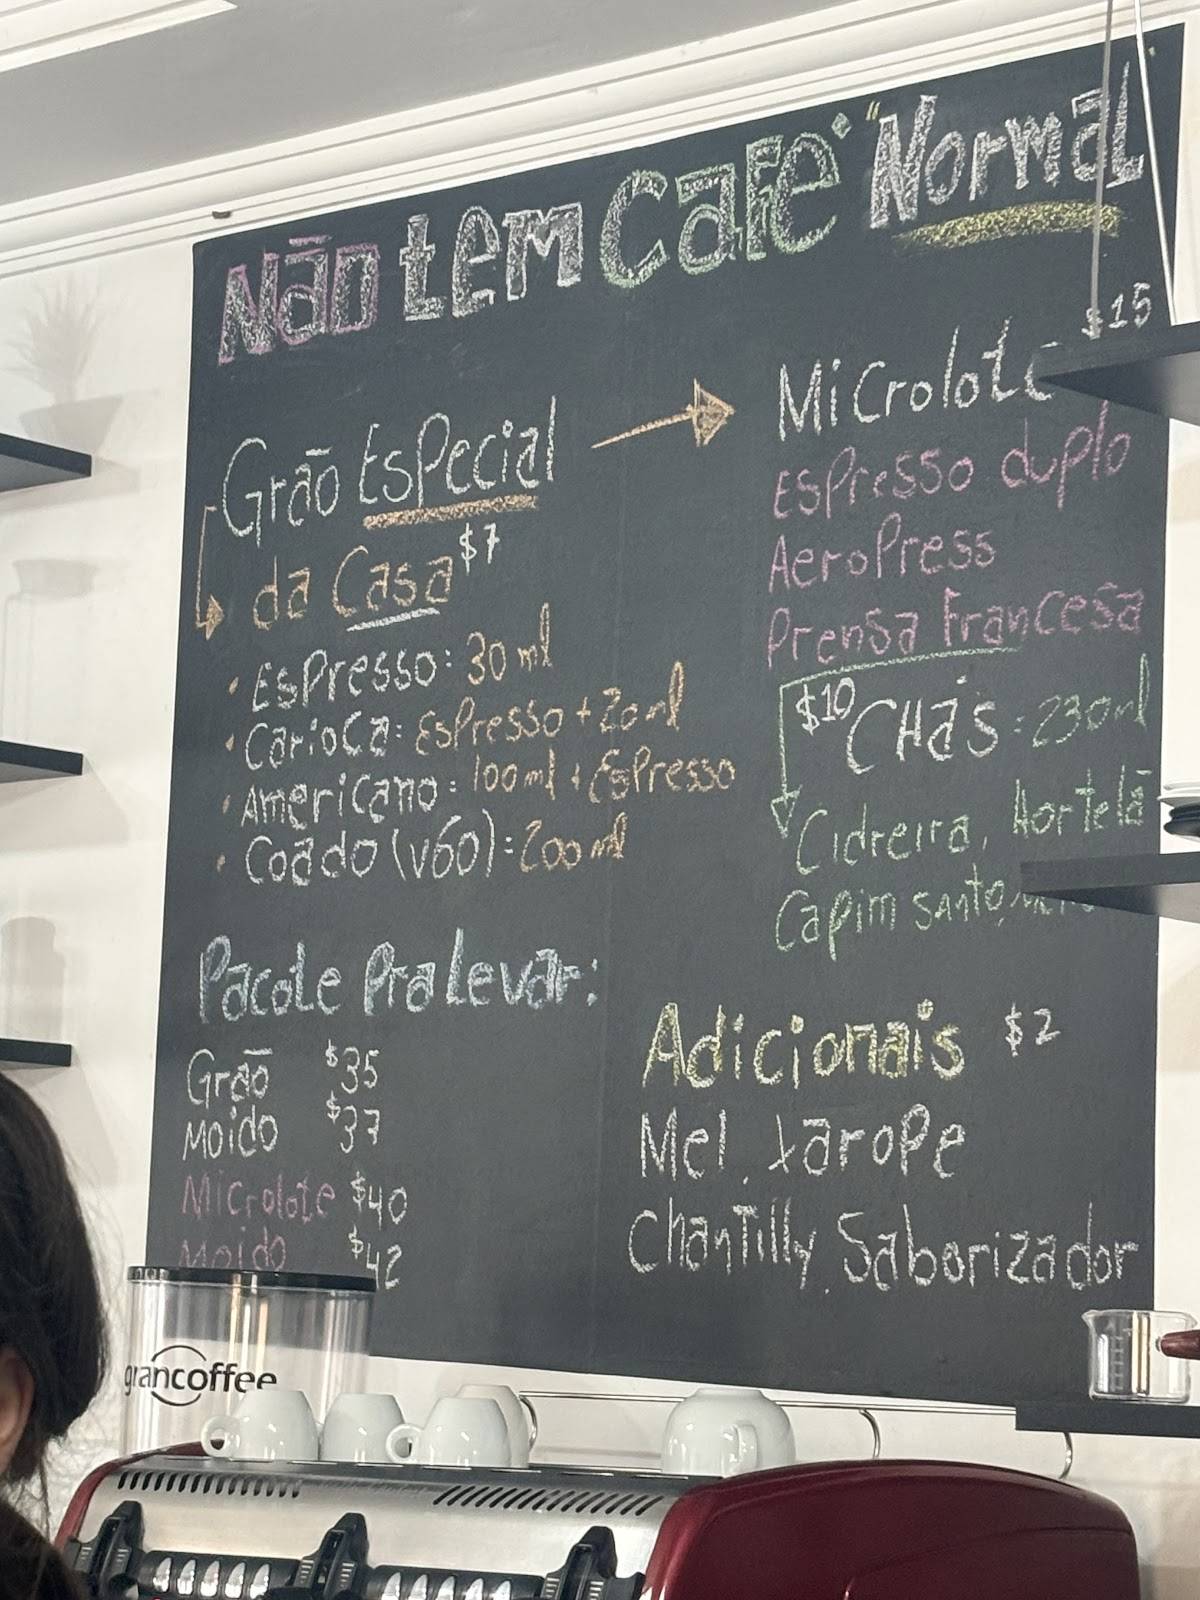 Não tem Café "Normal
Grão Especial
da Casa $7
• Espresso: 30ml
• Carioca: Espresso + 20ml
• Americano: 100ml + Espresso
• Coado (v60): 200ml
Pacote Pra Levar:
Grão $35
Moido $37
Microlote $40
Moido $42
Microlote $15
Espresso duplo
AeroPress
Prensa Francesa
$10 CHás: 230ml
Cidreira, Hortelã
Capim santo,
Adicionais $2
Mel, Xarope
Chantilly, Saborizador
grancoffee